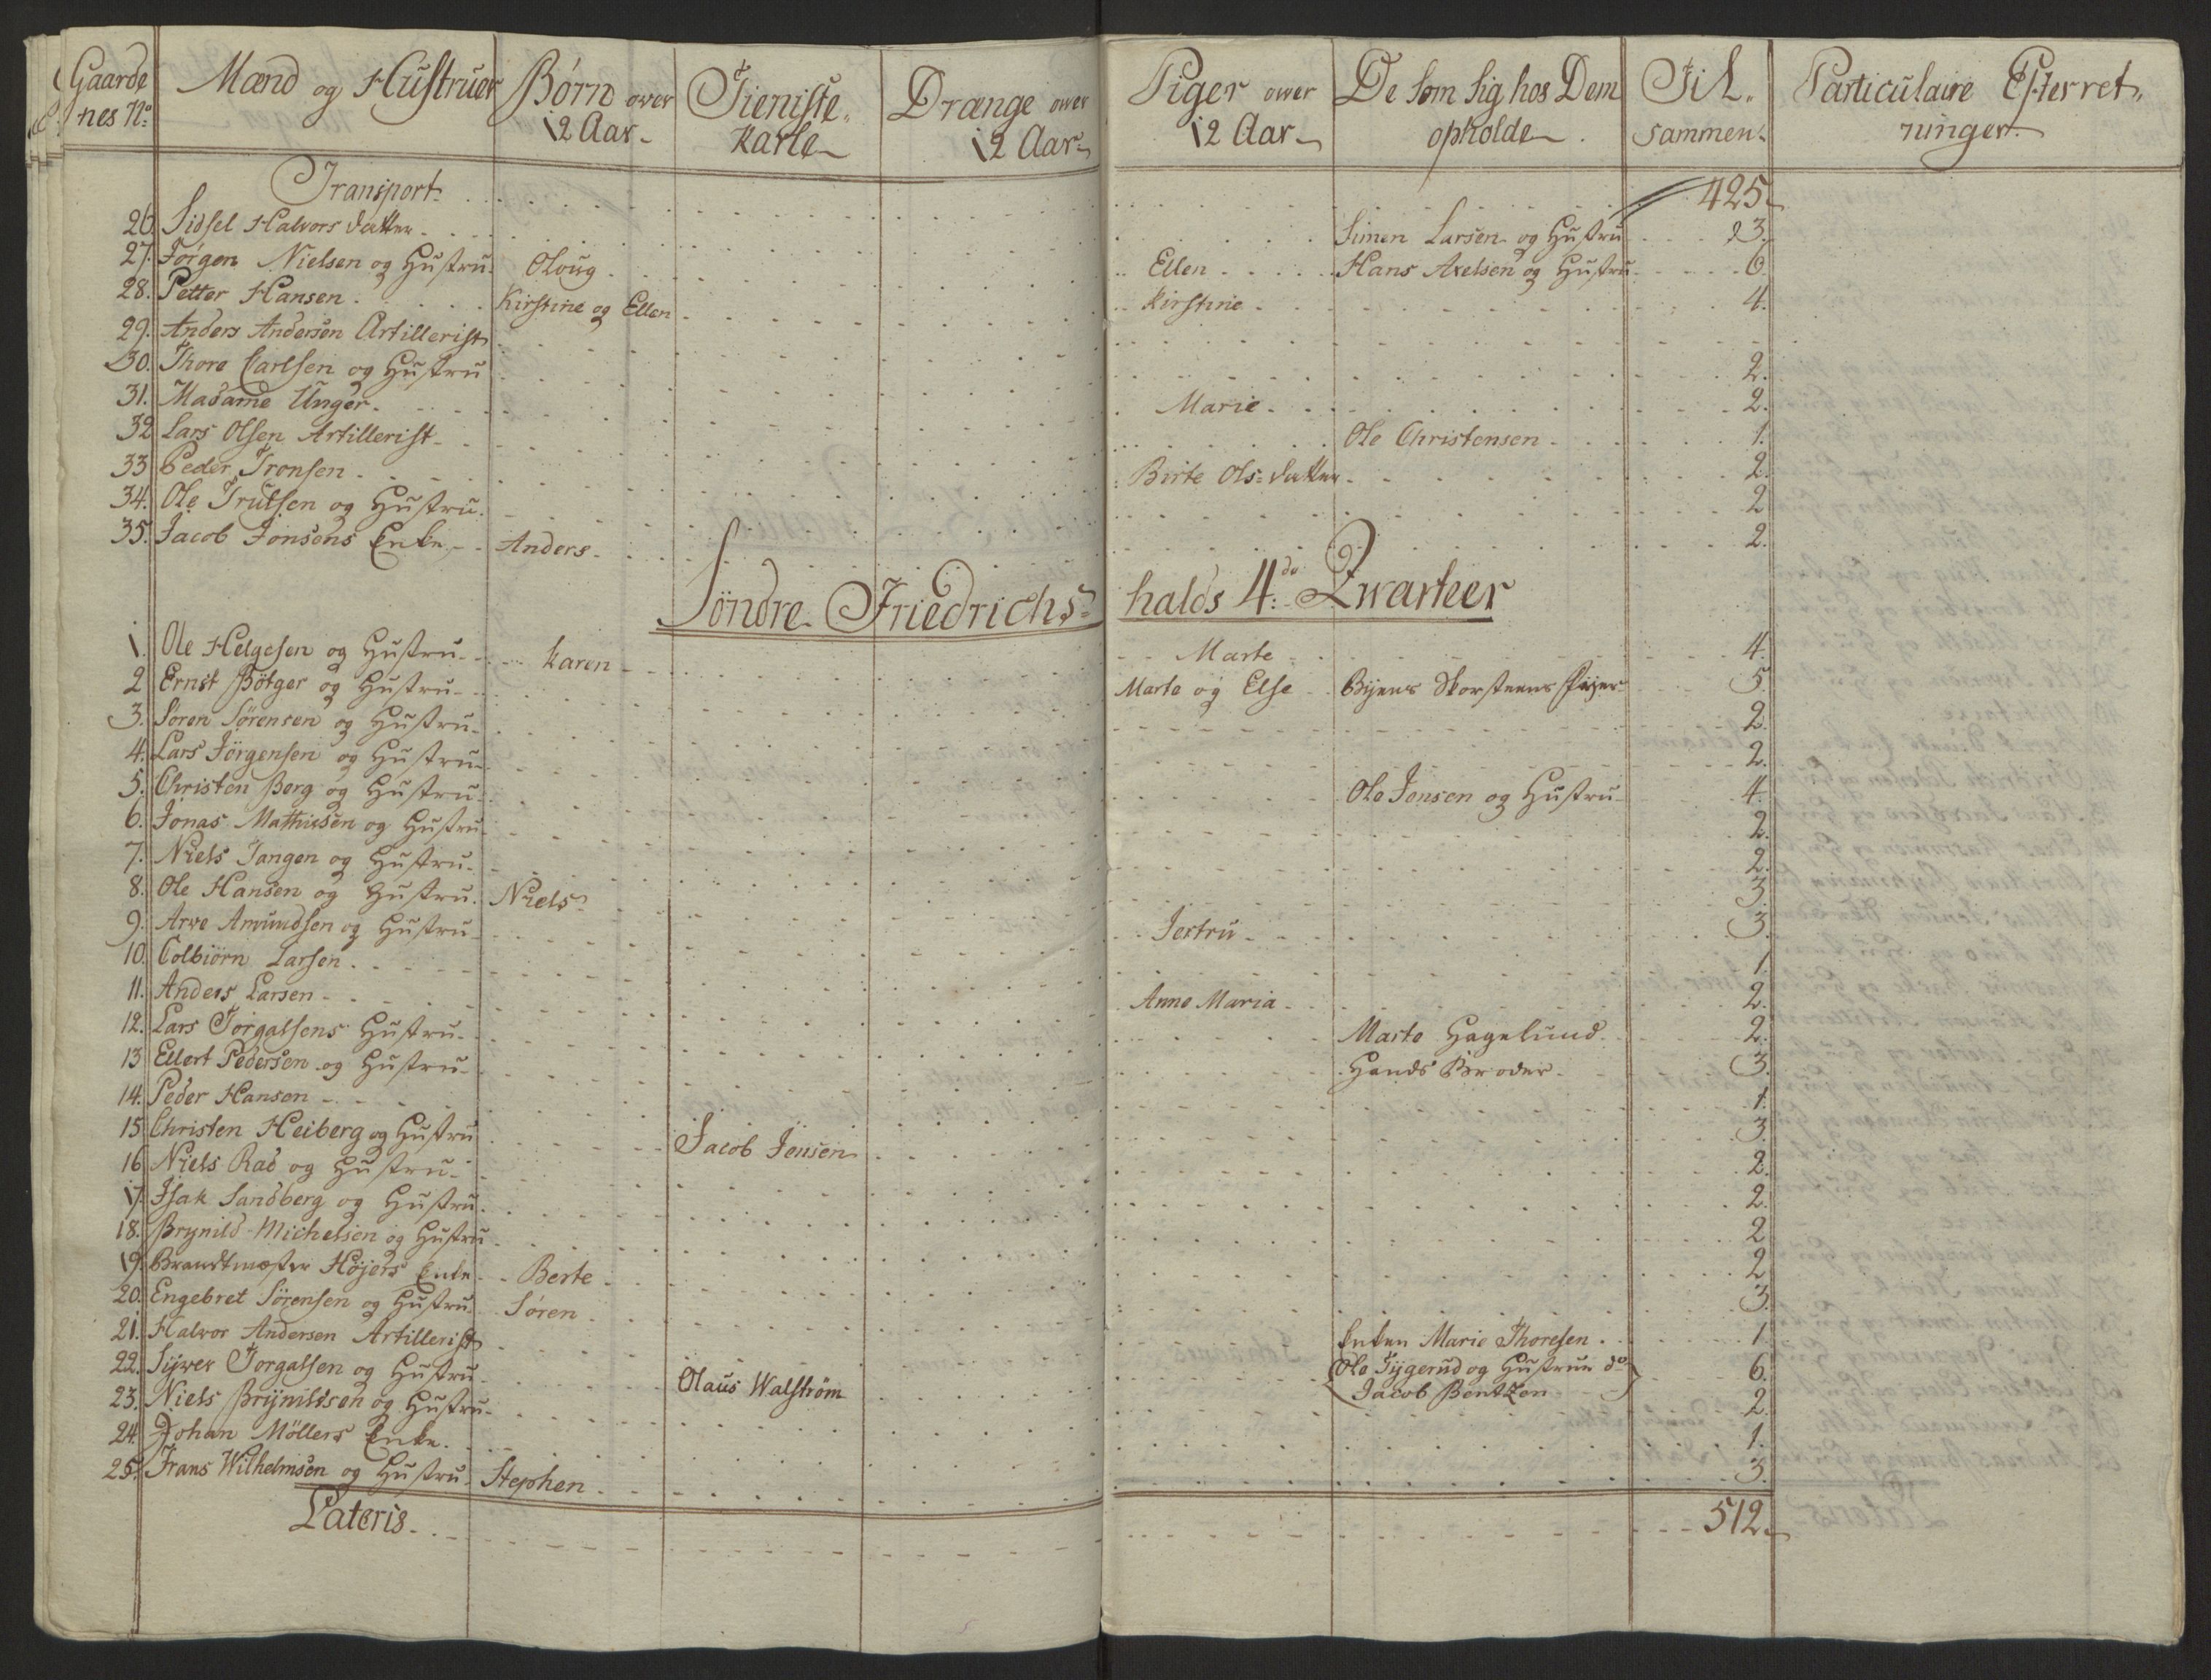 Gaarde nes No | Mænd og Hustruer | Børn over 12 Aar | Tieniste karle | Drænge over 12 Aar | Piger over 12 Aar | De som sig hos Dem opholde | Til sammen | Particulaire Efterretninger
Transport 425
26. Sidsel Halvors datter | Simen Larsen og Hustru | 3.
27. Jørgen Nielsen og Hustru | Oloug | Ellen | Hans Axelsen og Hustru | 6.
28. Petter Hansen | Kirstine og Ellen | Kirstine | 4.
29. Anders Andersen Artillerist
30. Thore Carlsen og Hustru | 2.
31. Madame Unger | Marie | 2.
32 Lars Olsen Artillerist | Ole Christensen | 1.
33 Peder Tronsen | Birte Ols: datter | 2.
34. Ole Trulsen og Hustru | 2
35. Jacob Jonsens Enke | Anders | 2.
Söndre Friedrichs-halds 4de Qwarteer
1. Ole Helgesen og Hustru | Karen | Marte | 4.
2 Ernst Bötger og Hustru | Marte og Else | Byens Skorsteens Fejer | 5.
3. Sören Sörensen og Hustru | 2.
4. Lars Jörgensen og Hustru | 2.
5. Christen Berg og Hustru | Ole Jensen og Hustru | 4.
6. Jonas Mathiesen og Hustru | 2.
7. Niels Tangen og Hustru | 2.
8. Ole Hansen og Hustru | Niels | 3
9. Arve Amundsen og Hustru | Jertru | 3.
10. Colbiörn Larsen | 1.
11. Anders Larsen | Anne Maria | 2.
12. Lars Torgalsens Hustru | Marte Hagelund | 2.
13 Ellert Pedersen og Hustru | Hands Broder | 3.
14. Peder Hansen | 1.
15 Christen Heiberg og Hustru | Jacob Jensen | 3.
16 Niels Rad og Hustru | 2.
17. Isak Sandberg og Hustru | 2.
18. Brynild Michelsen og Hustru | 2
19. Brandtmester Höjers Enke | Berte | 2
20. Engebret Sörensen og Hustru | Søren | 3.
21. Halvor Andersen Artillerist | Enken Marie Thoresen | 1.
22. Syver Torgalsen og Hustru | Olaus Walström | Ole Tygerud og Hustrue do Jacob Bentzen | 6.
23. Niels Brynildsen og Hustru | 2.
24. Johan Möllers Enke | 1.
25. Frans Wilhelmsen og Hustru | Stephen | 3.
Lateris 512.